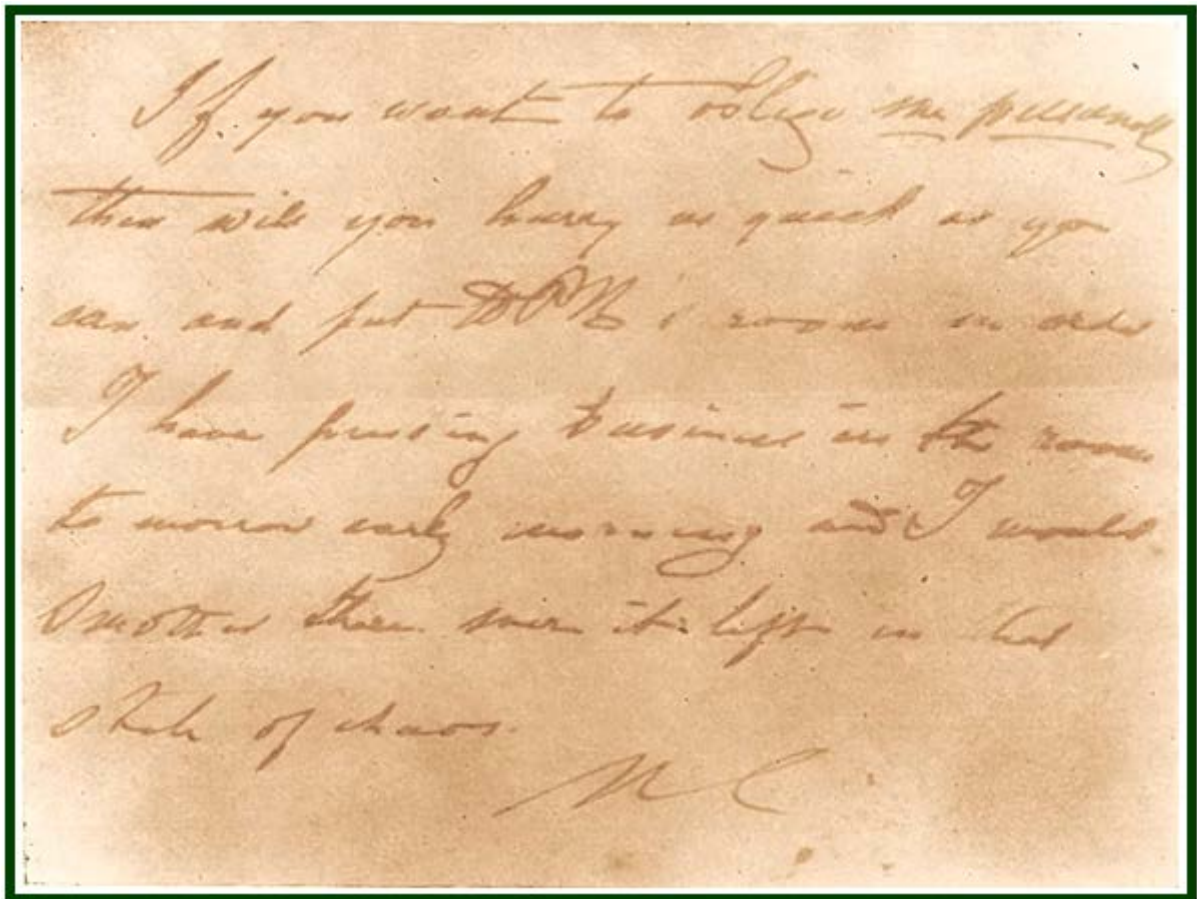 If you want to oblige me personally
then will you hurry as quick as you
can and put DPN's room in order
I have pressing business in the room
to morrow early morning and I would
smother there were it left in that
state of chaos.